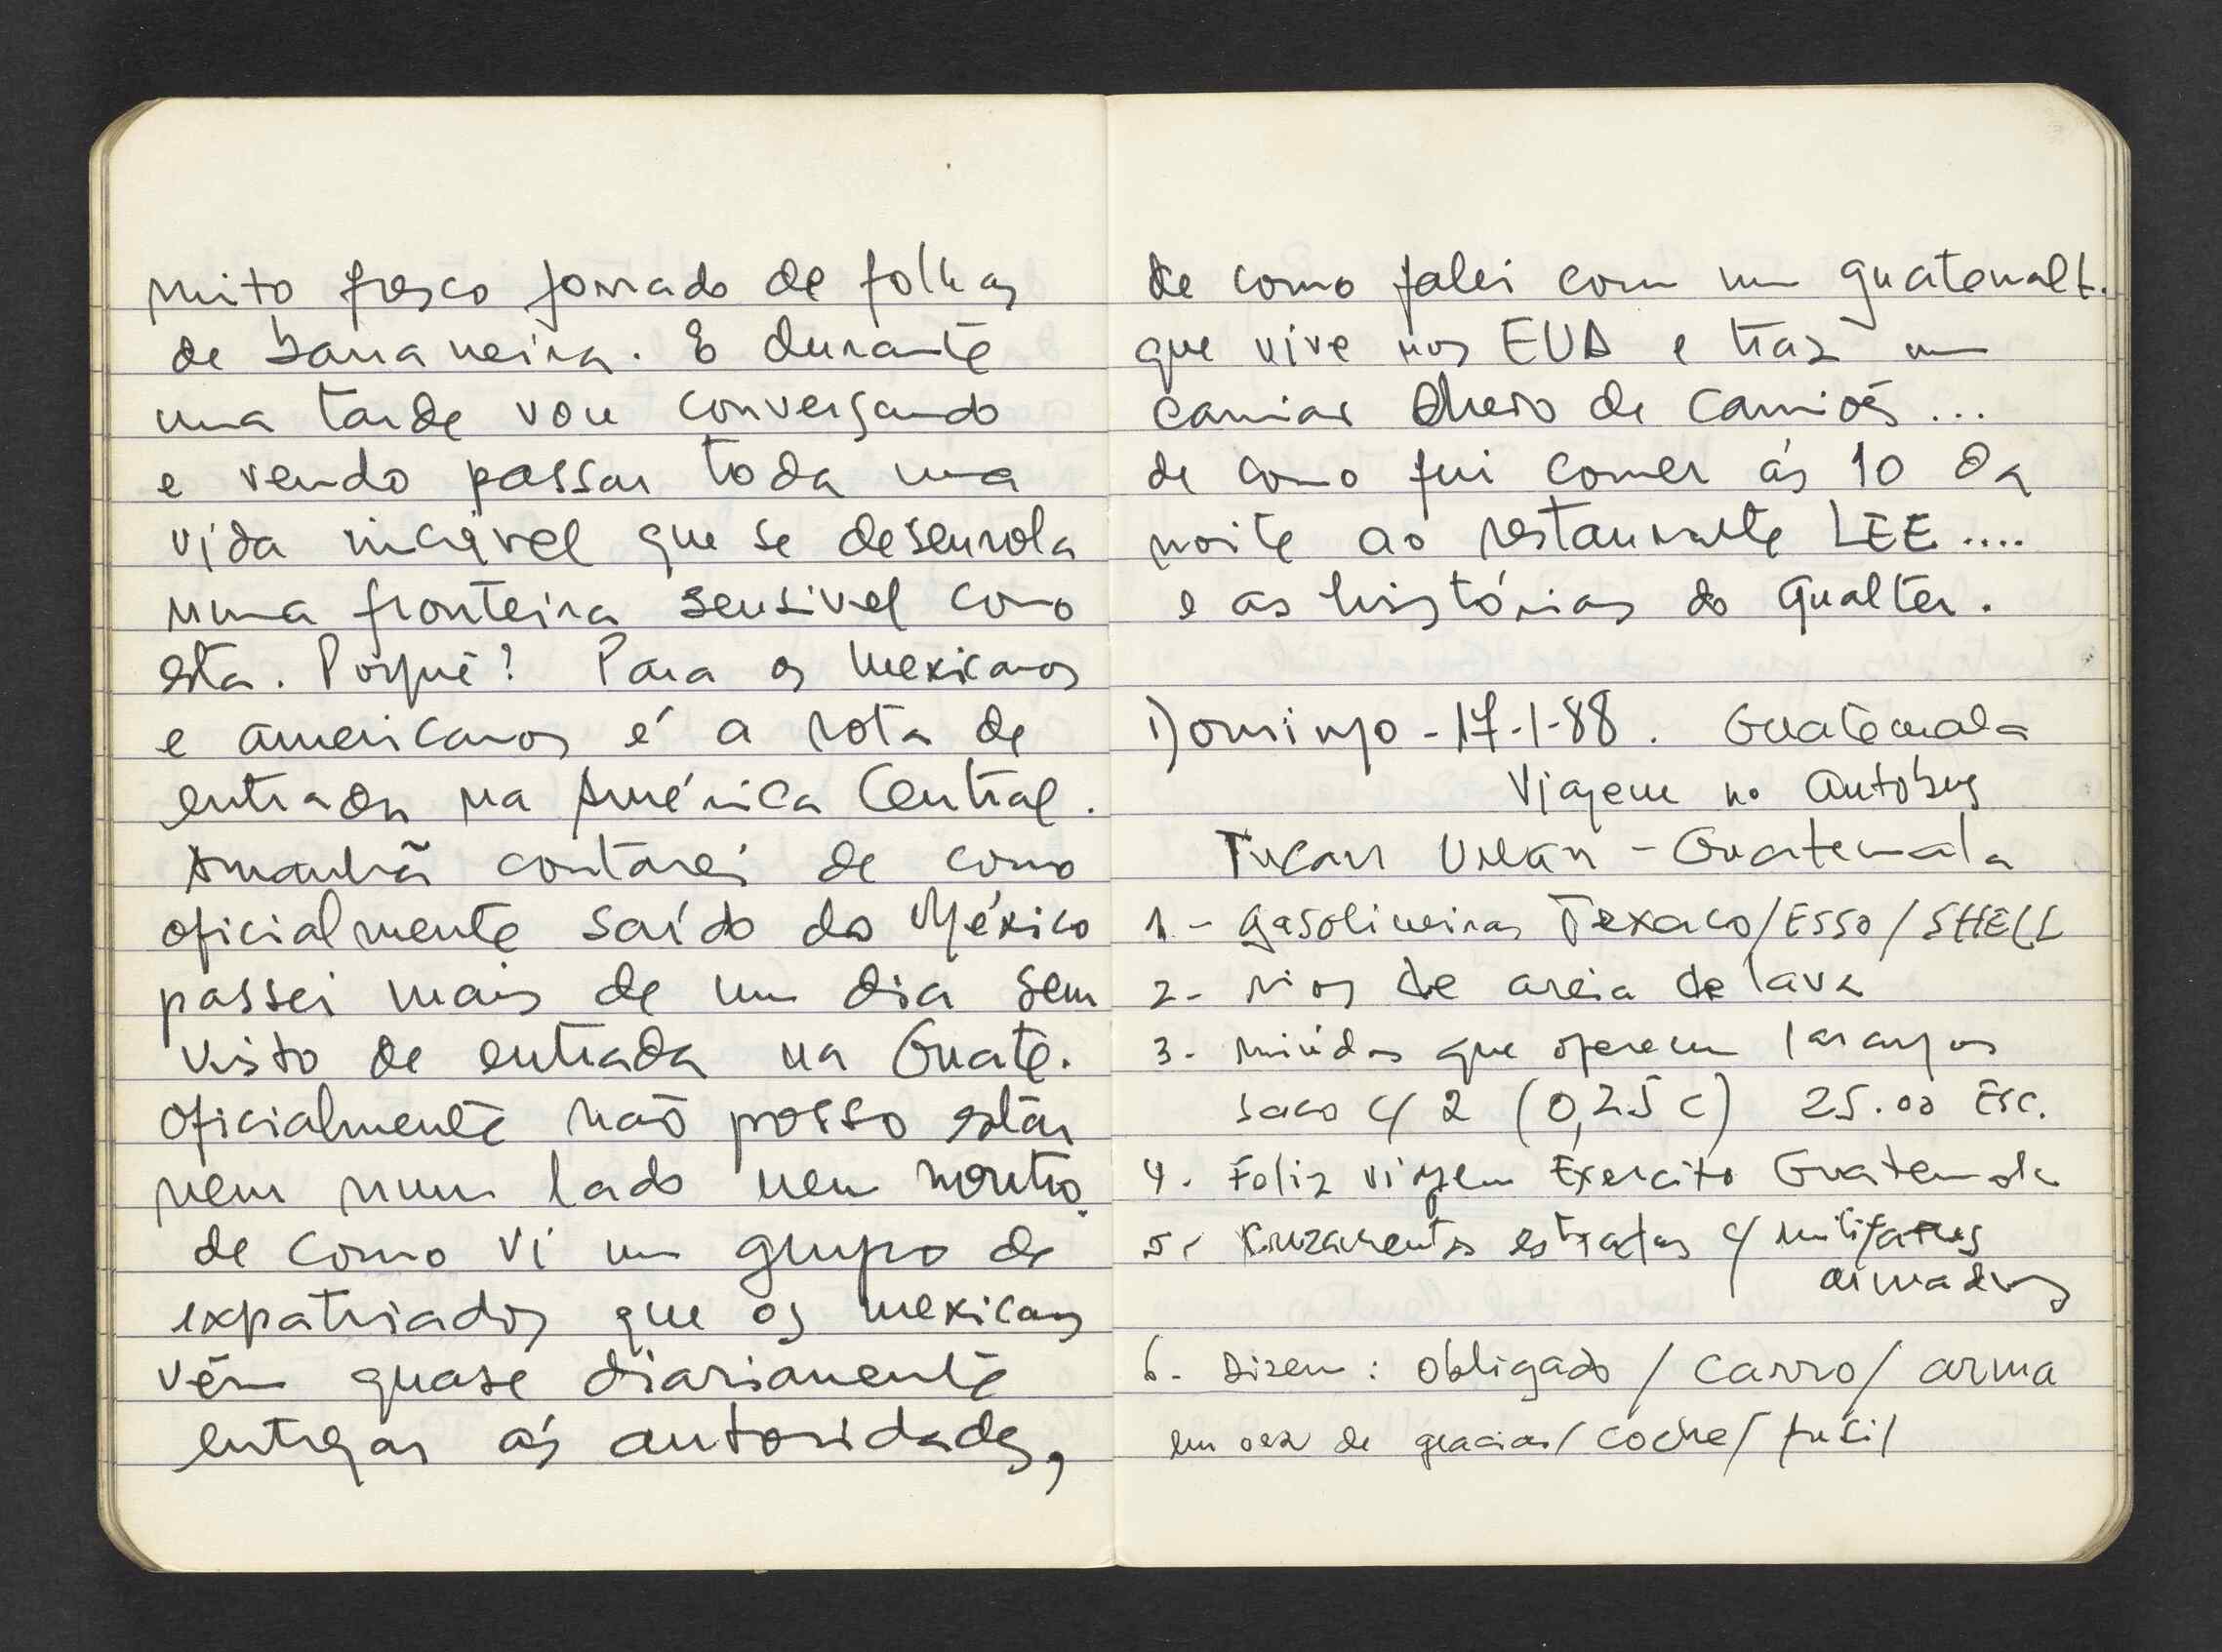 muito fresco forrado de folhas
de bananeira. E durante
uma tarde vou conversando
e vendo passar toda uma
vida incrivel que se desenrola
numa fronteira sensivel como
esta. Porquê? Para os mexicanos
e americanos é a rota de
entrada na América Central.
Amanhã contarei de como
oficialmente saído do México
passei mais de um dia sem
visto de entrada na Guate.
Oficialmente não posso estar
nem num lado nem noutro.
de como vi um grupo de
expatriados que os mexicanos
vêm quase diariamente
entregar ás autoridades,
de como falei com um guatemalt.
que vive nos EUA e traz um
camião cheio de camiões...
de como fui comer ás 10 da
noite ao restaurante LEE....
e as histórias do Gualter.
Domingo - 17-1-88. Guatemala
Viagem no Autobus
Tucan Uman - Guatemala
1 - gasolineiras Texaco/ESSO/SHELL
2 - rios de areia de lava
3 - miúdos que oferecem laranjas
saco c/ 2 (0,25 c) 25.00 Esc.
4. Feliz viagem Exercito Guatemala
5. Cruzamentos estradas c/ militares
armados
6 - Dizem: obligado / carro / arma
em vez de gracias / coche / fusil